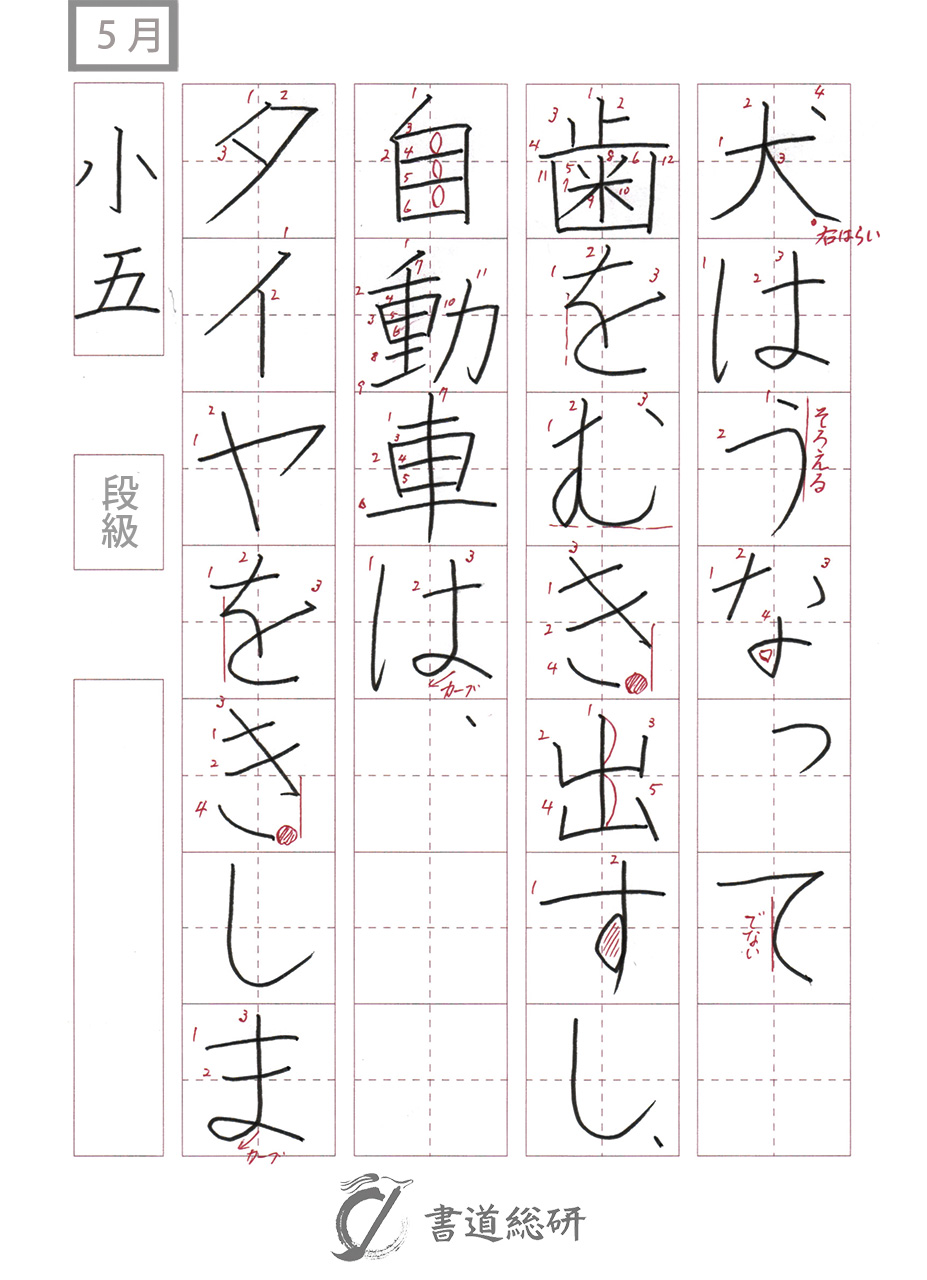 5月
犬はうなって
歯をむき出すし、
自動車は、
タイヤをきしま
小五
段級
右はらい
そろえる
でない
カーブ
カーブ
書道総研